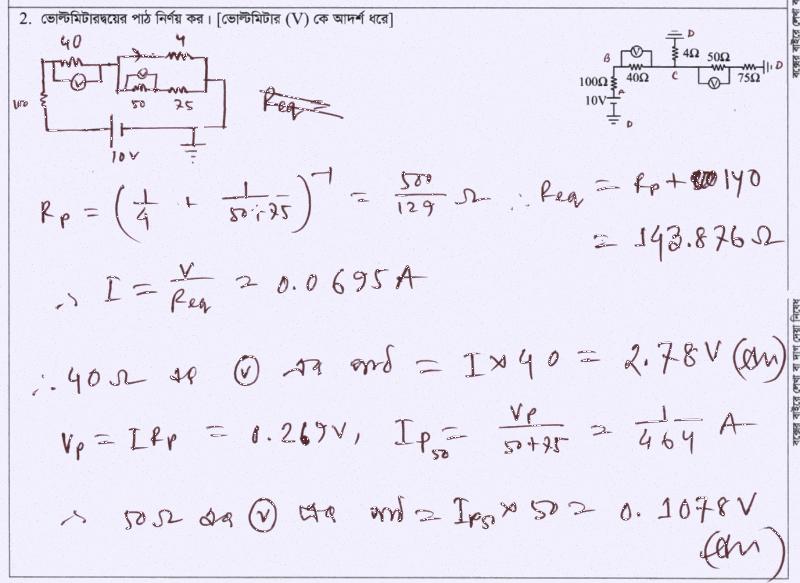 2. ভোল্টমিটারদ্বয়ের পাঠ নির্ণয় কর। [ভোল্টমিটার (V) কে আদর্শ ধরে]
40 4
V V
50 75
100
10V
D
B V 4Ω 50Ω D
100Ω 40Ω C V 75Ω
A
10V
D
Req
Rp = (1/4 + 1/(50+75))^-1 = 500/129 Ω ∴ Req = Rp + 140
= 143.876 Ω
∴ I = V/Req = 0.0695 A
∴ 40 Ω এর Ⓥ এর পাঠ = I × 40 = 2.78 V (Ans)
Vp = I Rp = 0.269V, Ip50 = Vp/(50+75) = 1/464 A
∴ 50 Ω এর Ⓥ এর পাঠ = Ip50 × 50 = 0.1078 V
(Ans)
বক্সের বাইরে লেখা বা দাগ দেয়া নিষেধ